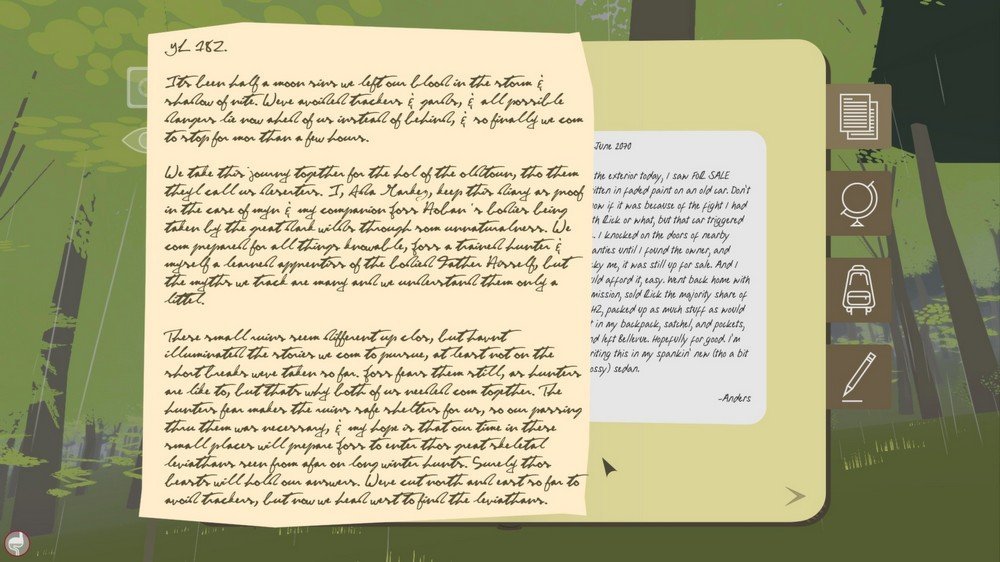 yL 182.
Its been half a moon sins we left our blood in the storm &
shadow of nite. Weve avoided trackers & gards, & all possible
dangers lie now ahed of us insted of behind, & so finally we com
to stop for mor than a few hours.
We take this journy together for the hol of the oldtoun, tho them
theyl call us deserters. I, Ada Markey, keep this diary as proof
in the case of myn & my companion Joss Nolan's bodies being
taken by the great dark wilds through som unnaturalness. We
com prepared for all things knowable, Joss a traned hunter &
myself a learned apprentiss of the bodied Father Hisself, but
the myths we track are many and we understand them only a
littel.
These small ruins seem different up clos, but havnt
illuminated the stories we com to pursue, at least not on the
short breaks weve taken so far. Joss fears them still, as hunters
are like to, but thats why both of us needed com together. The
hunters fear makes the ruins safe shelters for us, so our passing
thru them was necessary, & my hope is that our time in these
small places will prepare Joss to enter thos great skeletal
leviathans seen from afar on long winter hunts. Surely thos
beasts will hold our answers. Weve cut north and east so far to
avoid trackers, but now we head west to find the leviathans.
June 2070
the exterior today, I saw FOR SALE
itten in faded paint on an old car. Don't
ow if it was because of the fight I had
th Rick or what, but that car triggered
. I knocked on the doors of nearby
anties until I found the owner, and
cky me, it was still up for sale. And I
uld afford it, easy. Went back home with
mission, sold Rick the majority share of
H2, packed up as much stuff as would
t in my backpack, satchel, and pockets,
nd left Bellevue. Hopefully for good. I'm
riting this in my spankin' new (tho a bit
ossy) sedan.
-Anders